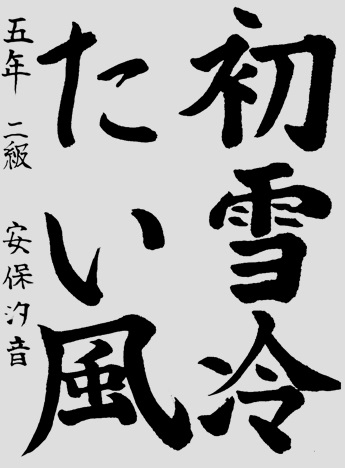 初雪冷
たい風
五年 二級 安保汐音